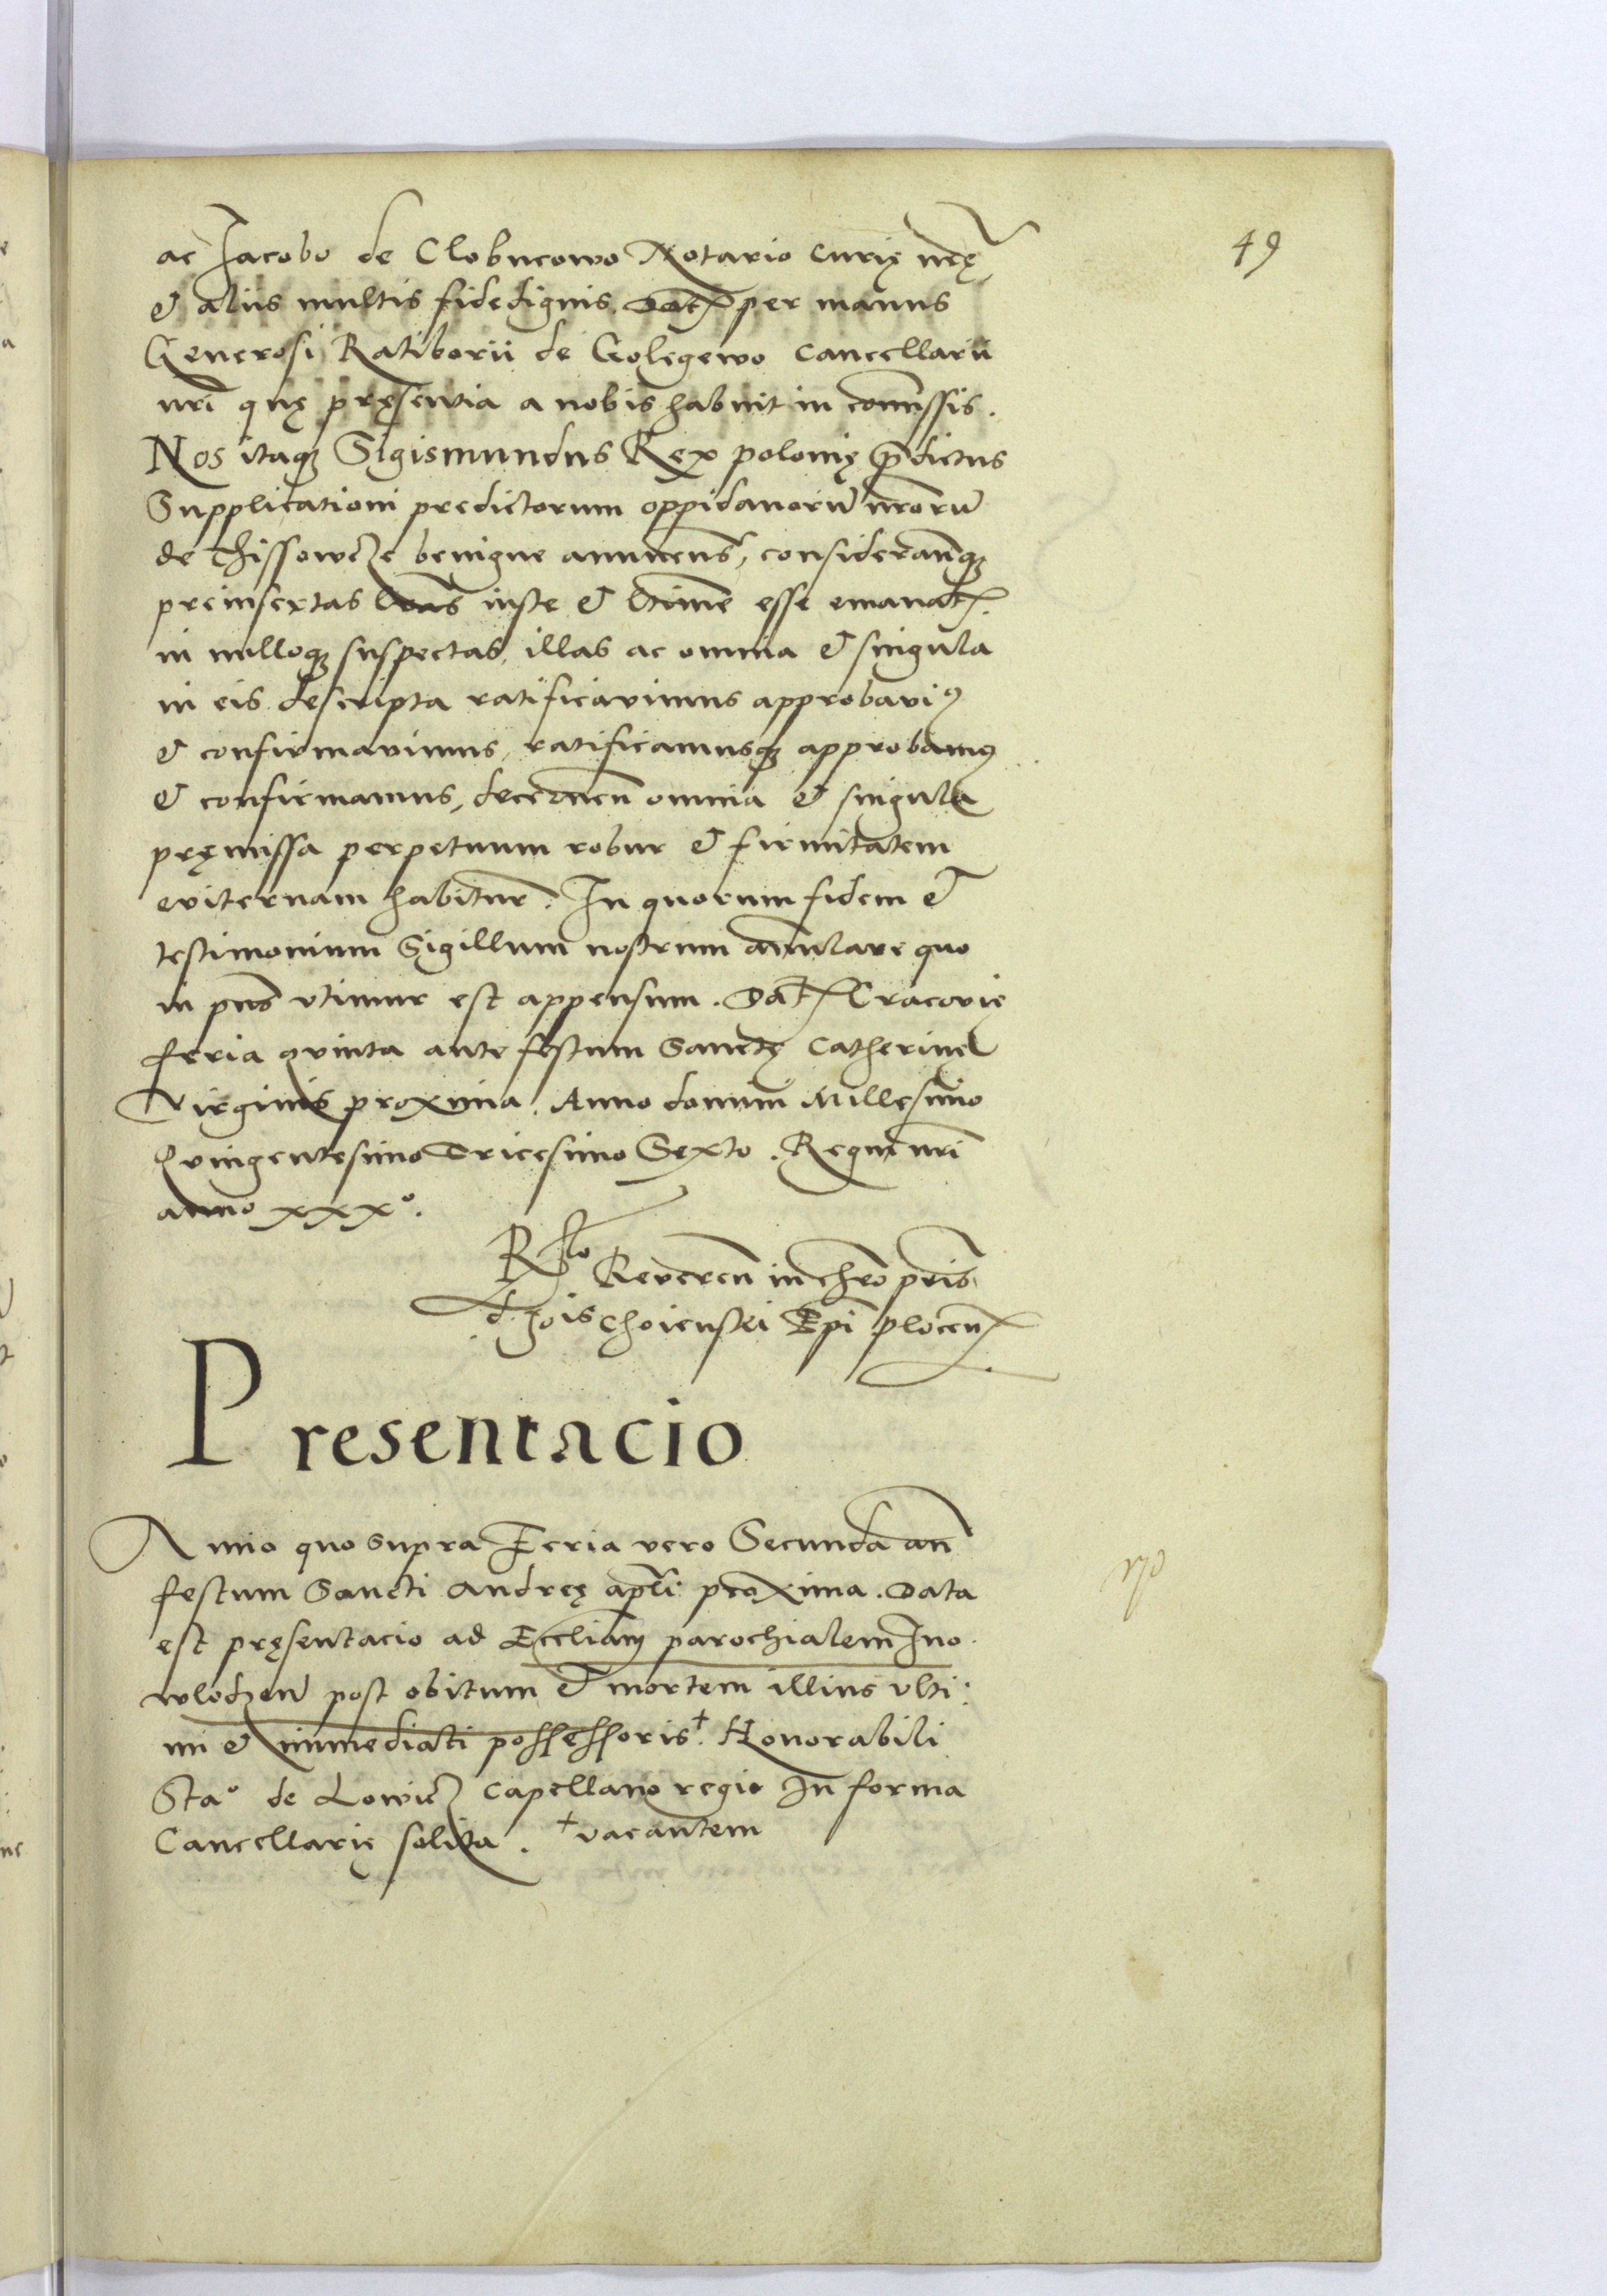 49
ac Jacobo de Clobucowo Notario curię nrę
& aliis multis fidedignis. Dat per manus
Generosi Ratiborii de Golegewo cancellarii
nri quę pręsentia a nobis habuit in comissis.
Nos itaq Sigismundus Rex polonię pdictus
Supplicationi predictorum oppidanorū nrorū
de Thissowcze benigne annuens, consideransq
preinsertas lras iuste & ltime esse emanat.
in nulloq suspectas, illas ac omnia & singula
in eis descripta ratificavimus approbavi9
& confirmavimus, ratificamusq approbam9
& confirmamus, decernen omnia & singula
pręmissa perpetuum robur & firmitatem
eviternam habitur. In quorum fidem &
testimonium Sigillum nostrum annulare quo
in pns utimur est appensum. Dat Cracovię
feria quinta ante festum Sanctę Catherinę
Virginis proxima. Anno domini Millesimo
Quingentesimo Tricesimo Sexto. Regni nri
anno xxxº.
Rlo Reveren in chro pris
d. Jois choienski Epi plocen
Presentacio
Anno quo supra Feria vero Secunda an
festum Sancti Andreę apli proxima. Data
est pręsentacio ad Eccliam parochialem Ino
wlodzen post obitum & mortem illius ulti:
mi & immediati possessoris+. Honorabili
Staº de Lowicz capellano regio In forma
Cancellarię solita. +vacantem